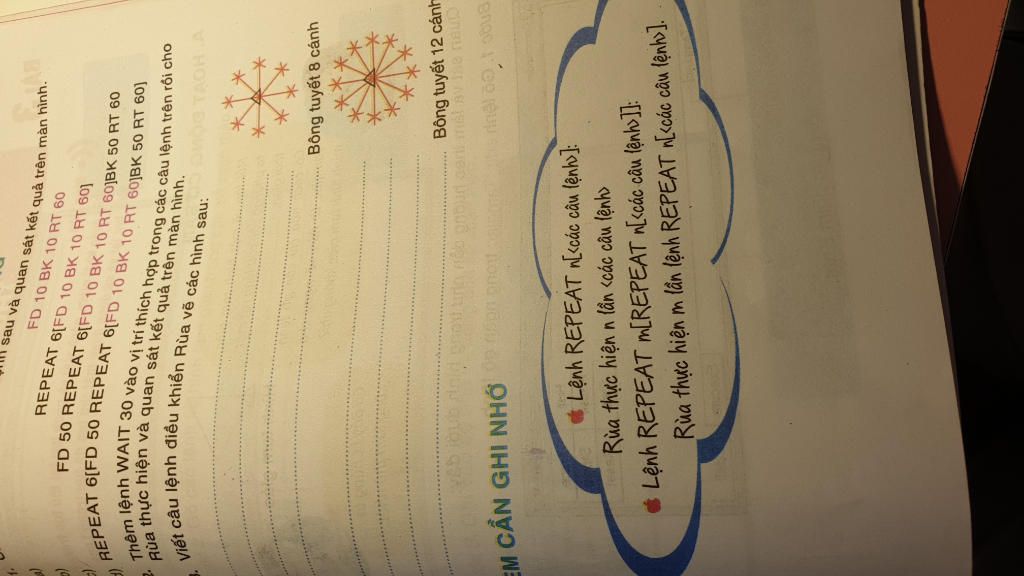 sau và quan sát kết quả trên màn hình.
FD 10 BK 10 RT 60
REPEAT 6[FD 10 BK 10 RT 60]
FD 50 REPEAT 6[FD 10 BK 10 RT 60]BK 50 RT 60
REPEAT 6[FD 50 REPEAT 6[FD 10 BK 10 RT 60]BK 50 RT 60]
Thêm lệnh WAIT 30 vào vị trí thích hợp trong các câu lệnh trên rồi cho
Rùa thực hiện và quan sát kết quả trên màn hình.
Viết câu lệnh điều khiển Rùa vẽ các hình sau:
Bông tuyết 8 cánh
Bông tuyết 12 cánh
EM CẦN GHI NHỚ
Lệnh REPEAT n[<các câu lệnh>]:
Rùa thực hiện n lần <các câu lệnh>
Lệnh REPEAT m[REPEAT n[<các câu lệnh>]]:
Rùa thực hiện m lần lệnh REPEAT n[<các câu lệnh>].